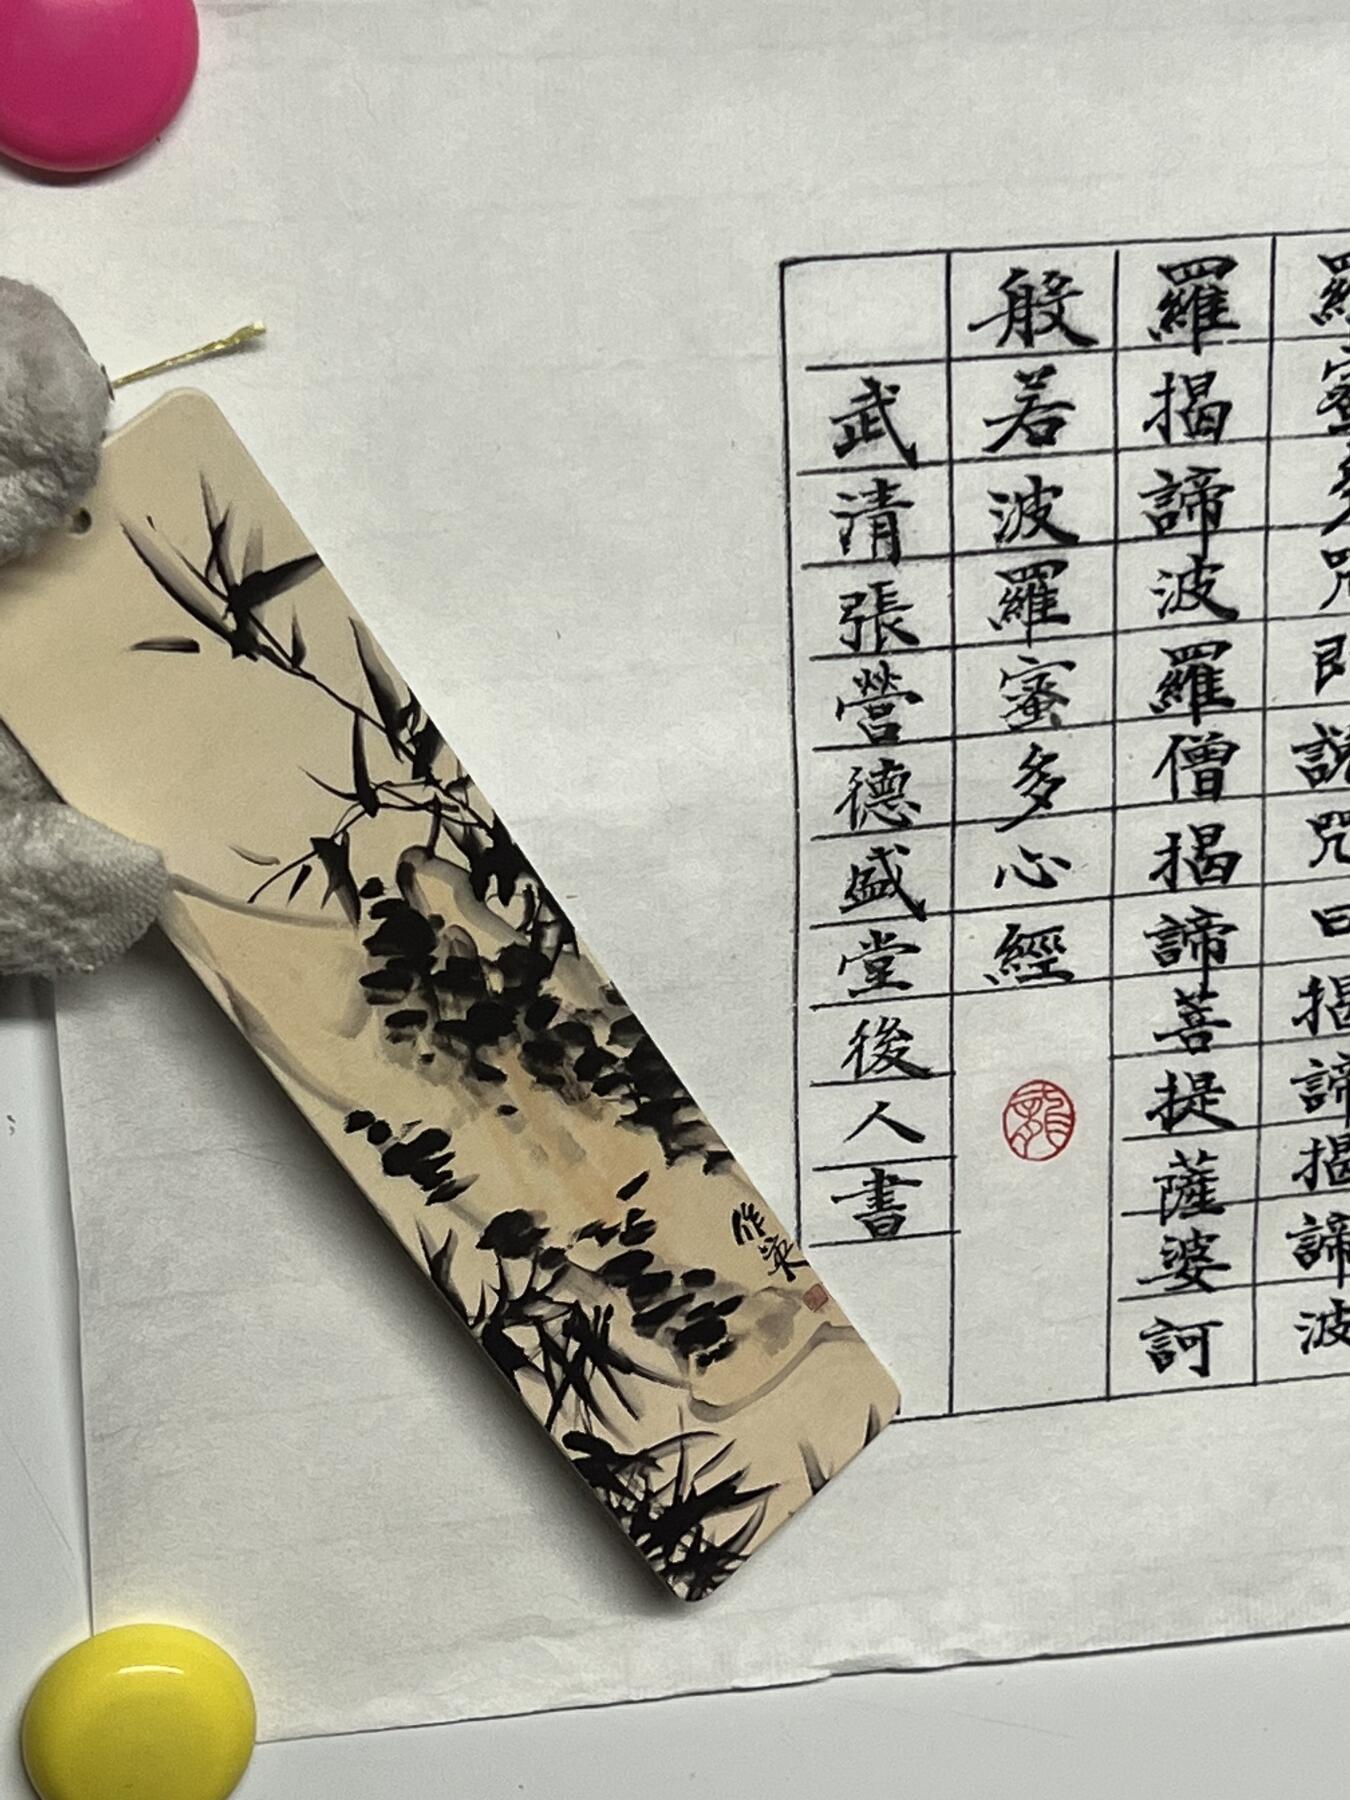 羅蜜多咒即說咒曰揭諦揭諦波
羅揭諦波羅僧揭諦菩提薩婆訶
般若波羅蜜多心經
龍
武清張營德盛堂後人書
作宾